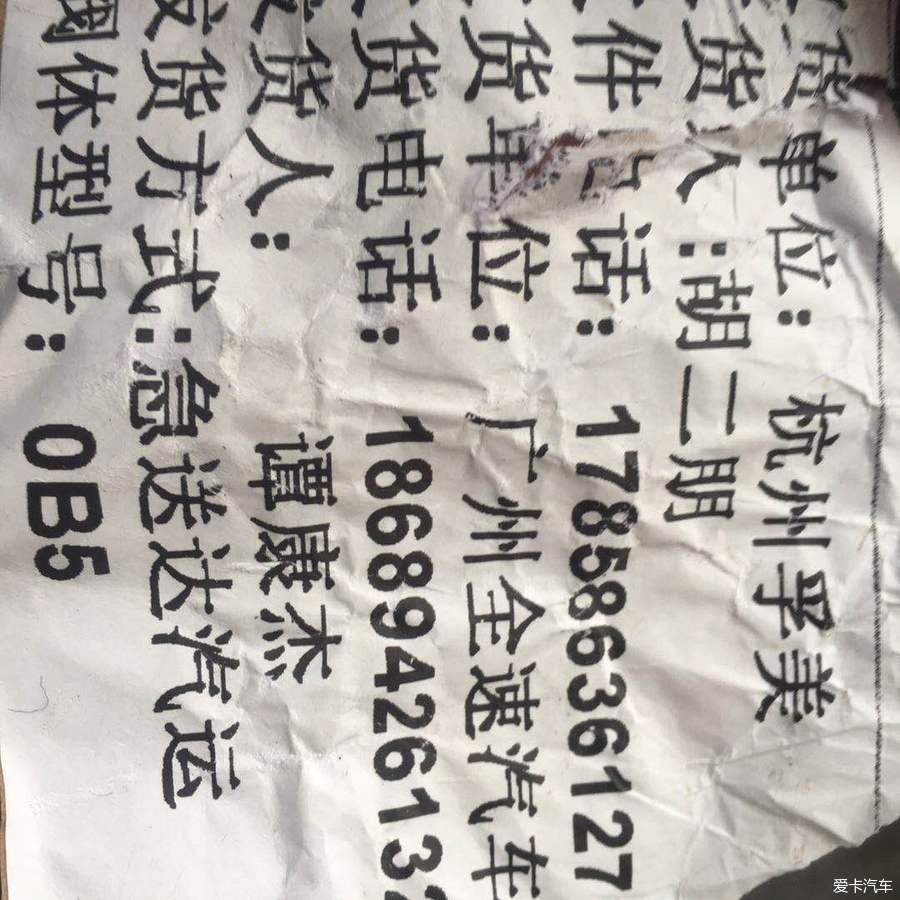 货单位：杭州孚美
货人：胡二朋
件电话：17858636127
货单位：广州全速汽车
货电话：1868942613
发货人：谭康杰
发货方式：急送达汽运
阀体型号：0B5
爱卡汽车